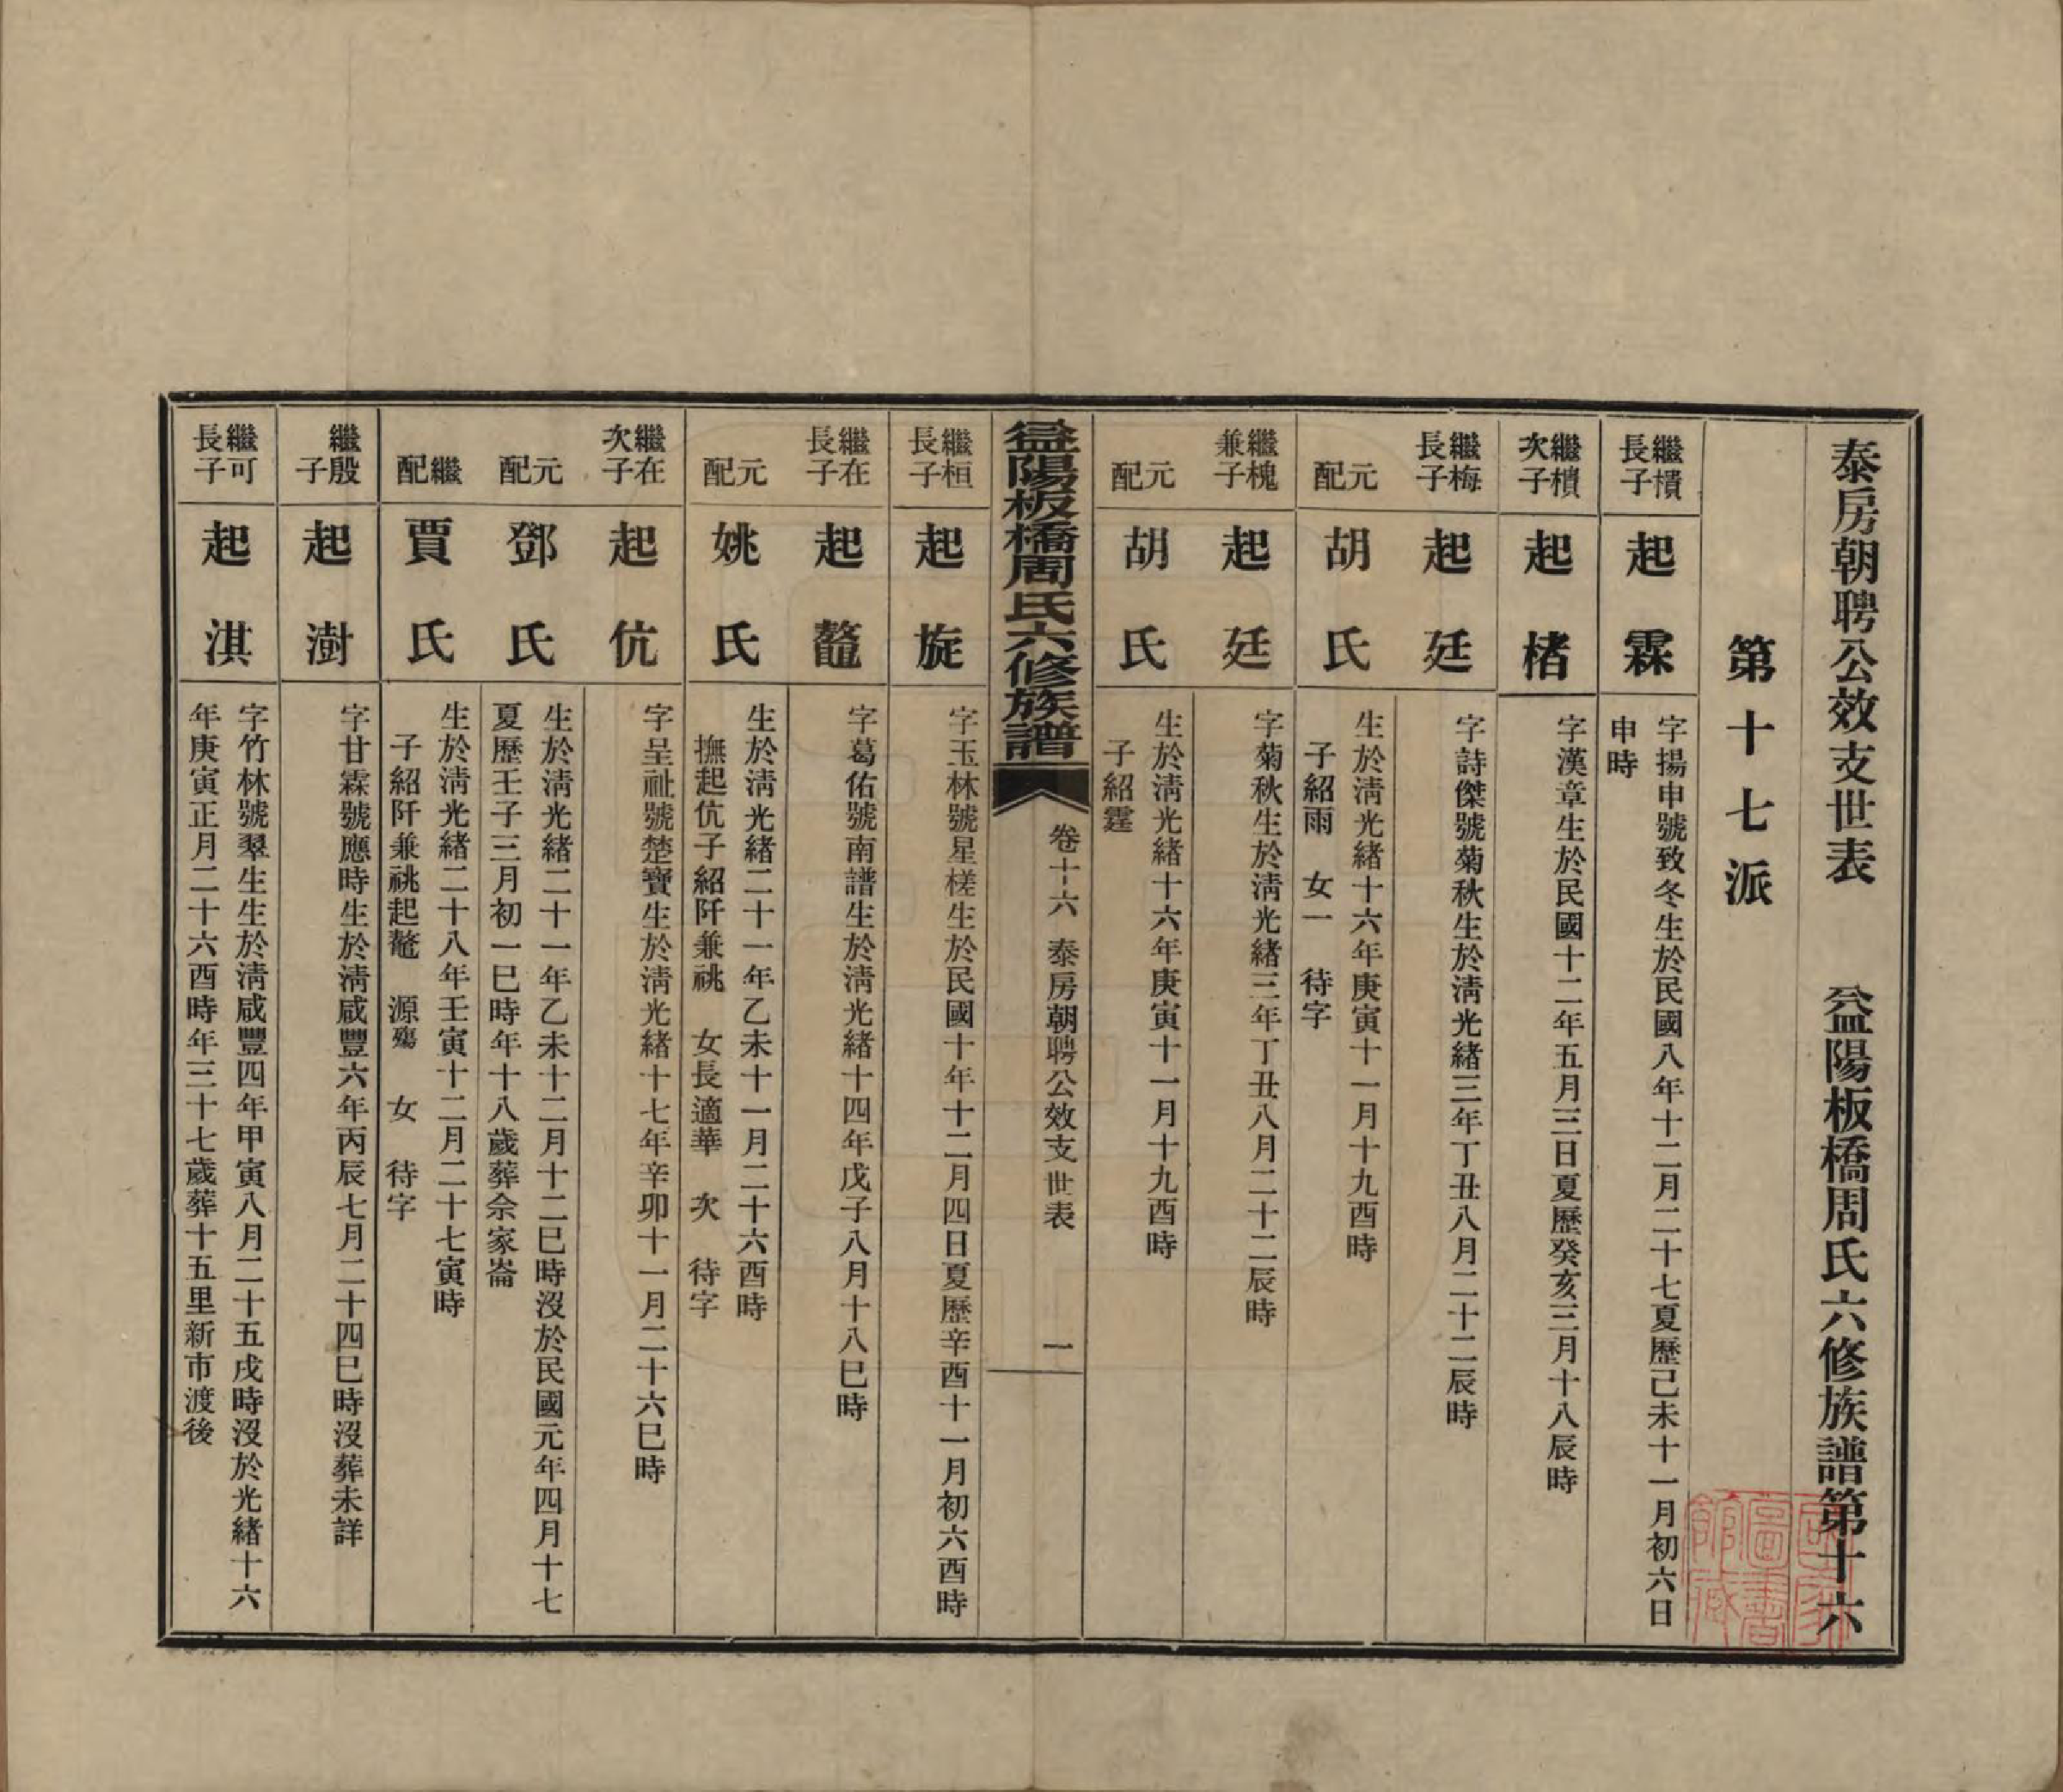 泰房朝聘公效支世表　益陽板橋周氏六修族譜第十六
第十七派
繼橨長子
起霖
字揚申號致冬生於民國八年十二月二十七夏歷己未十一月初六日
申時
繼橨次子
起楮
字漢章生於民國十二年五月三日夏歷癸亥三月十八辰時
繼梅長子
起廷
字詩傑號菊秋生於淸光緒三年丁丑八月二十二辰時
元配
胡氏
生於淸光緒十六年庚寅十一月十九酉時
子紹雨　女一　待字
繼槐兼子
起廷
字菊秋生於淸光緒三年丁丑八月二十二辰時
元配
胡氏
生於淸光緒十六年庚寅十一月十九酉時
子紹霆
益陽板橋周氏六修族譜
卷十六　泰房朝聘公效支世表　一
繼桓長子
起旋
字玉林號星槎生於民國十年十二月四日夏歷辛酉十一月初六酉時
繼在長子
起鼇
字葛佑號南譜生於淸光緒十四年戊子八月十八巳時
元配
姚氏
生於淸光緒二十一年乙未十一月二十六酉時
撫起伉子紹阡兼祧　女長適華　次　待字
繼在次子
起伉
字呈祉號楚寶生於淸光緒十七年辛卯十一月二十六巳時
元配
鄧氏
生於淸光緒二十一年乙未十二月十二巳時沒於民國元年四月十七
夏歷壬子三月初一巳時年十八歲葬佘家崙
繼配
賈氏
生於淸光緒二十八年壬寅十二月二十七寅時
子紹阡兼祧起鼇　源殤　女　待字
繼殷子
起澍
字甘霖號應時生於淸咸豐六年丙辰七月二十四巳時沒葬未詳
繼可長子
起淇
字竹林號翠生生於淸咸豐四年甲寅八月二十五戌時沒於光緒十六
年庚寅正月二十六酉時年三十七歲葬十五里新市渡後